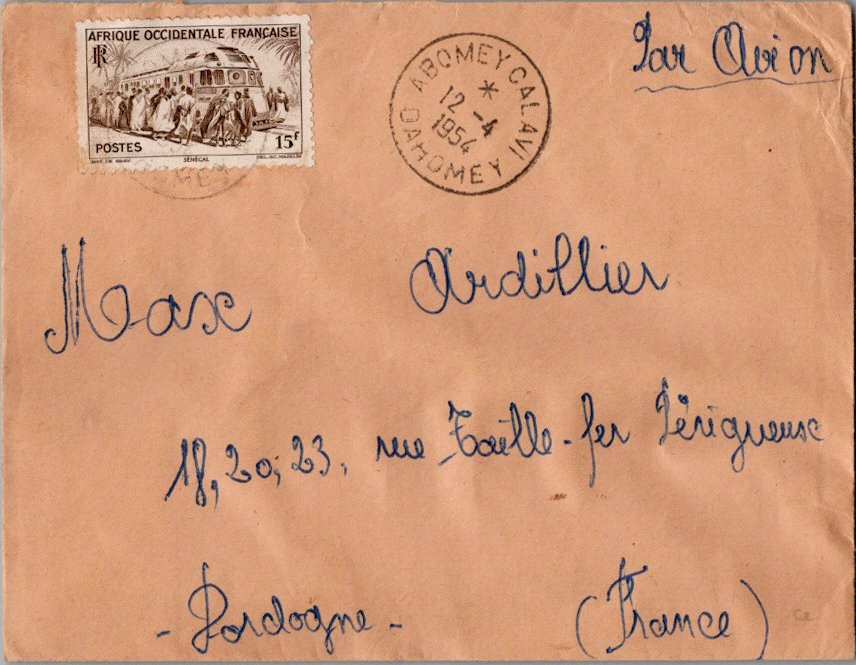 AFRIQUE OCCIDENTALE FRANÇAISE
RF
15f
POSTES
SÉNÉGAL
ABOMEY CALAVI
*
12 -4
1954
DAHOMEY
Par Avion
Max Ardillier
18, 20, 23, rue Taille-fer Périgueux
- Dordogne -
(France)